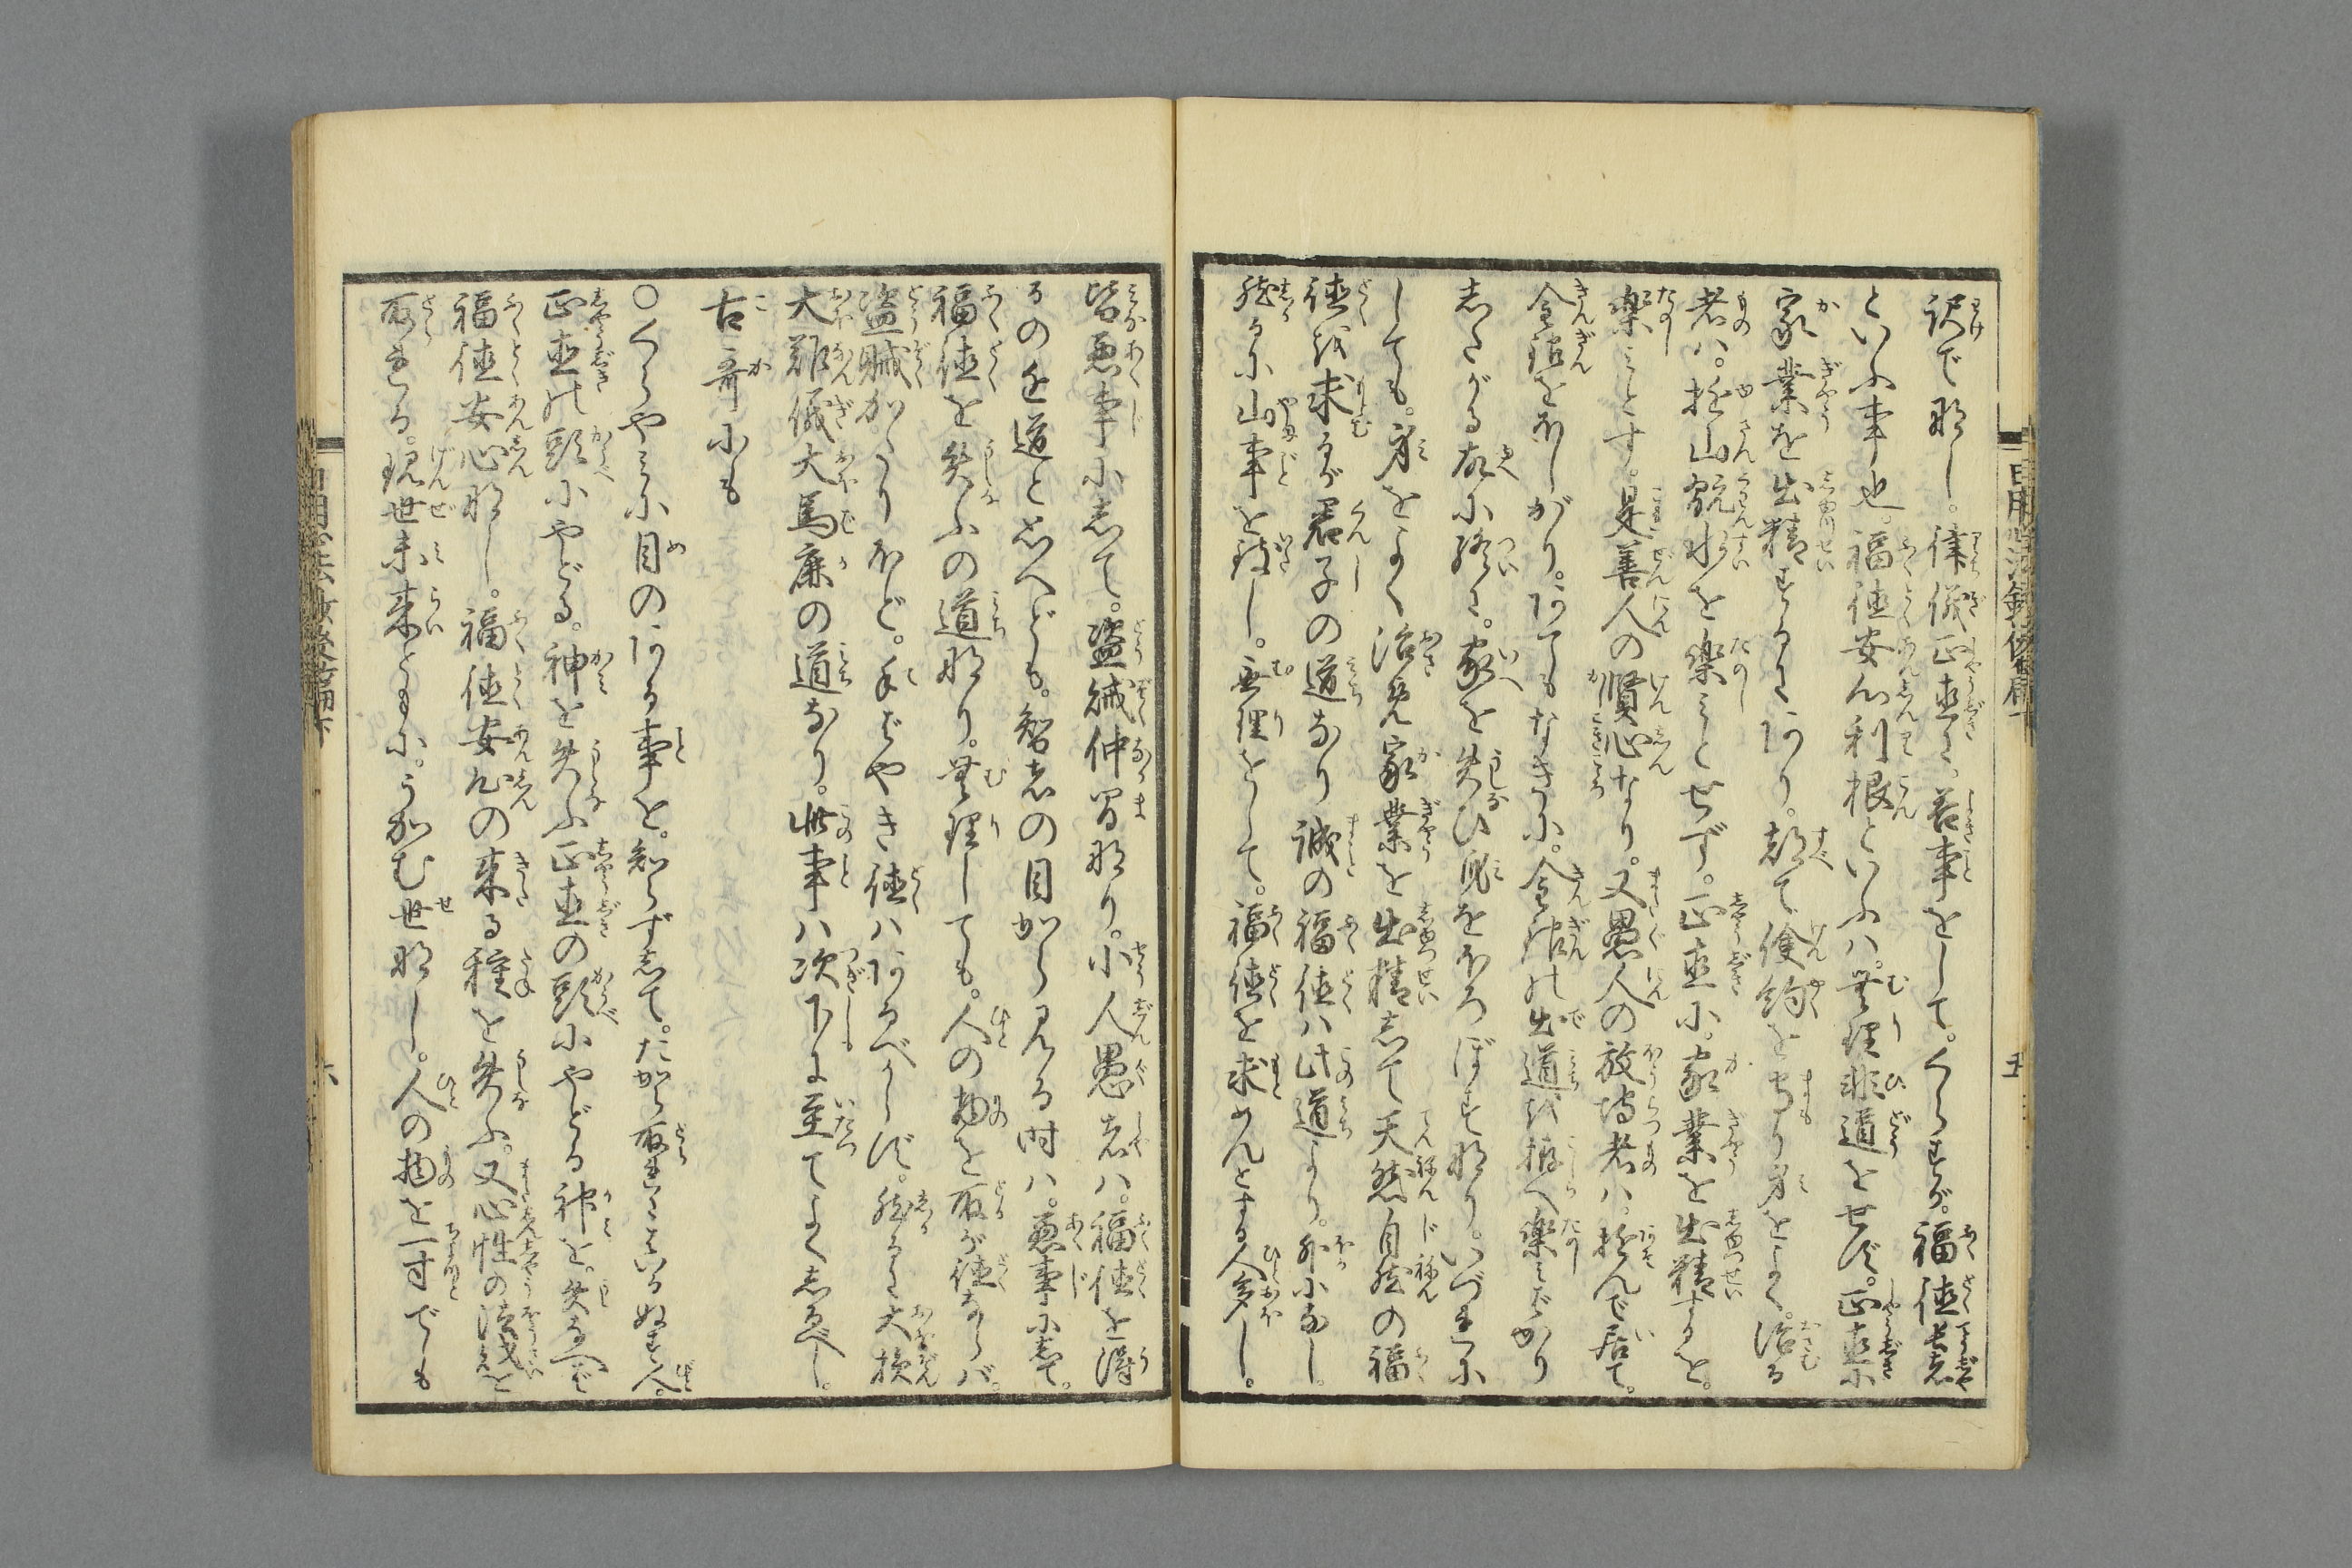 訳で那し。律儀正直に。善事をして。くらすが。福徳長者
といふ事也。福徳安心利根といふハ。無理非道をせず。正直に
家業を出精するにあり。都て倹約を守り身をよく。治る
者ハ。遊山翫水を楽ミとせず。正直に。家業を出精するを。
楽ミとす。是善人の賢心なり。又愚人の放埒者ハ。遊んで居て。
金銀をほしがり。あてもなきに。金銀の出道を拵へ楽ミばかり
したがる故に終に。家を失ひ身をほろぼす那り。いづれに
しても。身をよく治め家業を出精して天然自然の福
徳を求るが君子の道なり誠の福徳ハ此道より。外になし。
然るに山事を致し。無理をして。福徳を求めんとする人多し。
皆悪事にして。盗賊仲間那り。小人愚者ハ。福徳を得
るの近道と思へども。智者の目から見る時ハ。悪事にして。
福徳を失ふの道那り。無理しても。人の物を取が徳ならバ。
盗賊がつりほど。手ばやき徳ハあるべからず。然るに大損
大難儀大馬鹿の道なり。此事ハ次下に至てよくしるべし。
古哥にも
○くらやミに目のある事を。知らずして。だから取るとはいるぬす人。
正直の頭にやどる。神を失ふ正直の頭にやどる神を。失なへば
福徳安心那し。福徳安心の来る種を失ふ。又心性の法財を
取れる。現世未来ともに。うかむ世那し。人の物を一寸でも